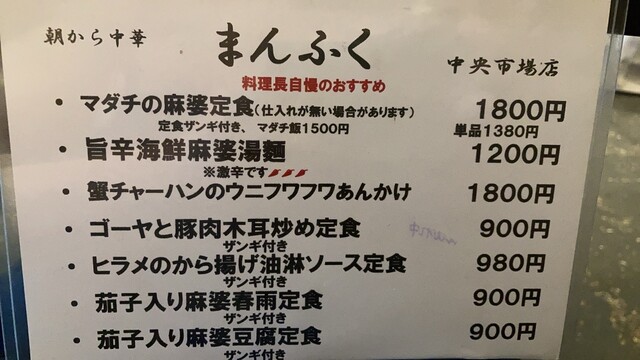 朝から中華 まんふく 中央市場店
料理長自慢のおすすめ
・マダチの麻婆定食（仕入れが無い場合があります） 1800円
定食ザンギ付き、マダチ飯1500円 単品1380円
・旨辛海鮮麻婆湯麺 1200円
※激辛です
・蟹チャーハンのウニフワフワあんかけ 1800円
・ゴーヤと豚肉木耳炒め定食 900円
ザンギ付き
・ヒラメのから揚げ油淋ソース定食 980円
ザンギ付き
・茄子入り麻婆春雨定食 900円
ザンギ付き
・茄子入り麻婆豆腐定食 900円
ザンギ付き